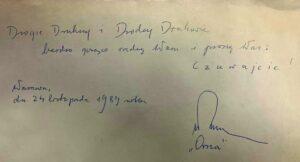 Drogie Druhny i Drodzy Druhowie
bardzo gorąco radzę Wam i proszę Was:
Czuwajcie!
Warszawa,
dn. 24 listopada 1989 roku
"Orsza"